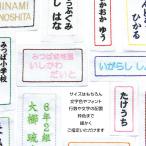 MINAMI
NOSHITA
つぶぐみ
しょう はな
おか ゆう
ひかる
みつば小学校
みつば幼稚園
いしかわ
だいと
いがらし
6年2組
大塚 琉
たけうち
サイズはもちろん
文字色やフォント
行数や文字の配置
枠色まで
細かく
ご指定いただけます